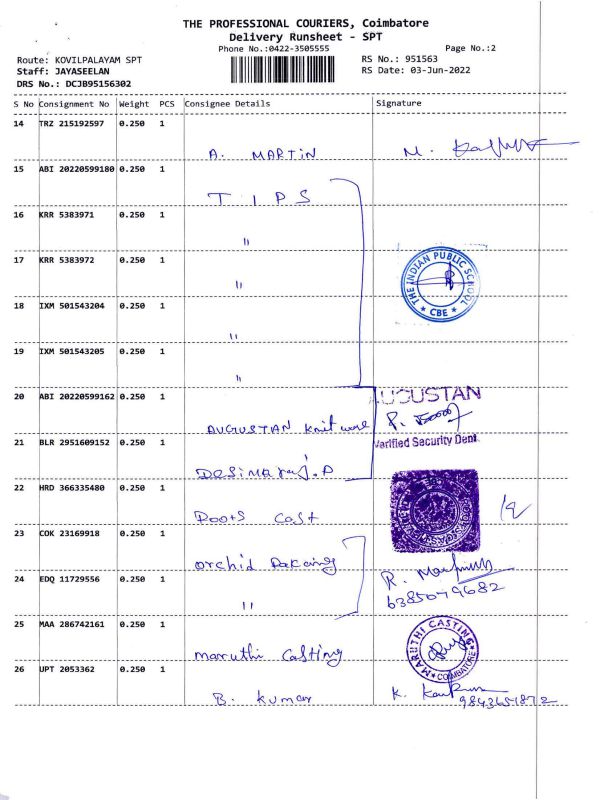 THE PROFESSIONAL COURIERS, Coimbatore
Delivery Runsheet - SPT
Phone No.:0422-3505555
Page No.:2
Route: KOVILPALAYAM SPT
RS No.: 951563
Staff: JAYASEELAN
RS Date: 03-Jun-2022
DRS No.: DCJB95156302
S No Consignment No Weight PCS Consignee Details Signature
14 TRZ 215192597 0.250 1
A. MARTIN M.
15 ABI 20220599180 0.250 1
T I P S
16 KRR 5383971 0.250 1
"
17 KRR 5383972 0.250 1
"
THE INDIAN PUBLIC SCHOOL
★ CBE ★
18 IXM 501543204 0.250 1
"
19 IXM 501543205 0.250 1
"
20 ABI 20220599162 0.250 1
AUGUSTAN
AUGUSTAN knit wore P.
21 BLR 2951609152 0.250 1
Verified Security Dent
22 HRD 366335480 0.250 1
Roots Cast
23 COK 23169918 0.250 1
Orchid Pakaing
24 EDQ 11729556 0.250 1
R.
" 6385079682
25 MAA 286742161 0.250 1
maruthi Casting
MARUTHI CASTING
★ COIMBATORE ★
26 UPT 2053362 0.250 1
B. kumar K.
9843651872